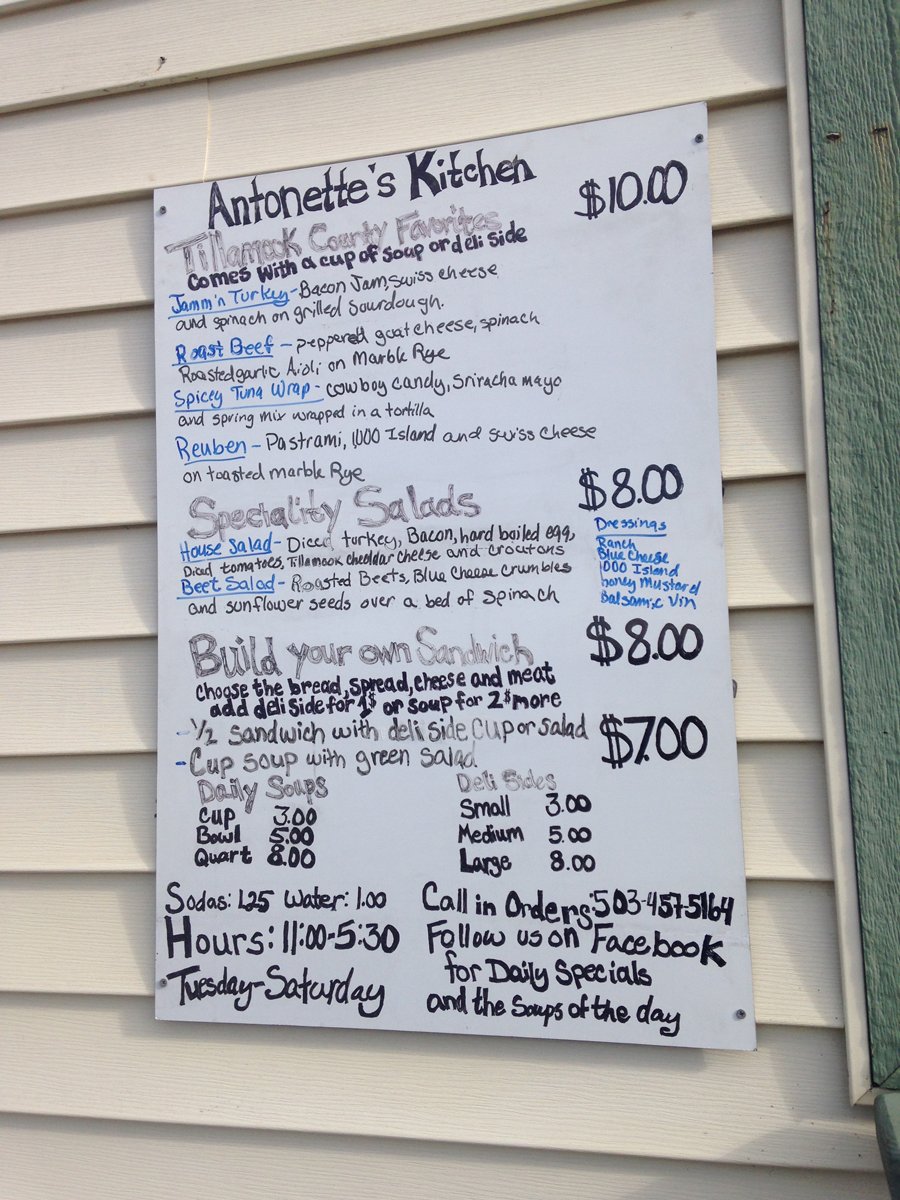 Antonette's Kitchen
$10.00
Tillamook County Favorites
Comes with a cup of soup or deli side
Jamm'n Turkey - Bacon Jam, swiss cheese
and spinach on grilled sourdough.
Roast Beef - peppered goat cheese, spinach
Roasted garlic Aioli on Marble Rye
Spicey Tuna Wrap - cowboy candy, Sriracha mayo
and spring mix wrapped in a tortilla
Reuben - Pastrami, 1,000 Island and swiss cheese
on toasted marble Rye
Speciality Salads
$8.00
House Salad - Diced turkey, Bacon, hard boiled egg,
Diced tomatoes, Tillamook cheddar cheese and croutons
Beet Salad - Roasted Beets, Blue Cheese Crumbles
and sunflower seeds over a bed of spinach
Dressings
Ranch
Blue Cheese
1000 Island
honey Mustard
Balsamic Vin
Build your own Sandwich
$8.00
choose the bread, spread, cheese and meat
add deli side for 1$ or soup for 2$ more
- 1/2 sandwich with deli side, cup or salad
$7.00
- Cup soup with green salad
Daily Soups
Cup 3.00
Bowl 5.00
Quart 8.00
Deli Sides
Small 3.00
Medium 5.00
Large 8.00
Sodas: 1.25 Water: 1.00
Hours: 11:00-5:30
Tuesday-Saturday
Call in Orders: 503-457-5164
Follow us on Facebook
for Daily Specials
and the Soups of the day